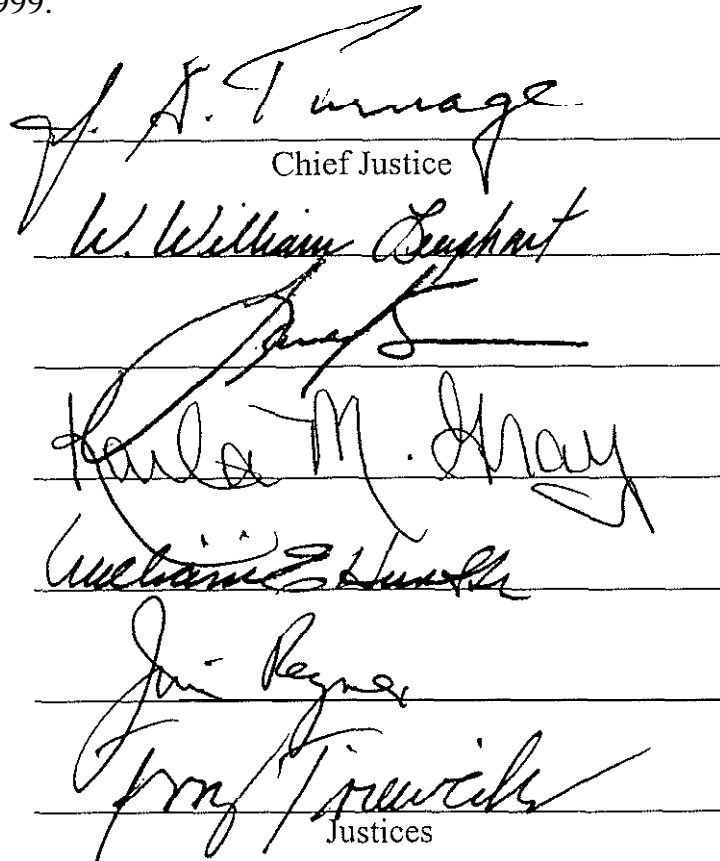 999.
J. A. Turnage
Chief Justice
W. William Leaphart
Karla M. Gray
William E Hunt Sr
Jim Regnier
Terry Trieweiler
Justices